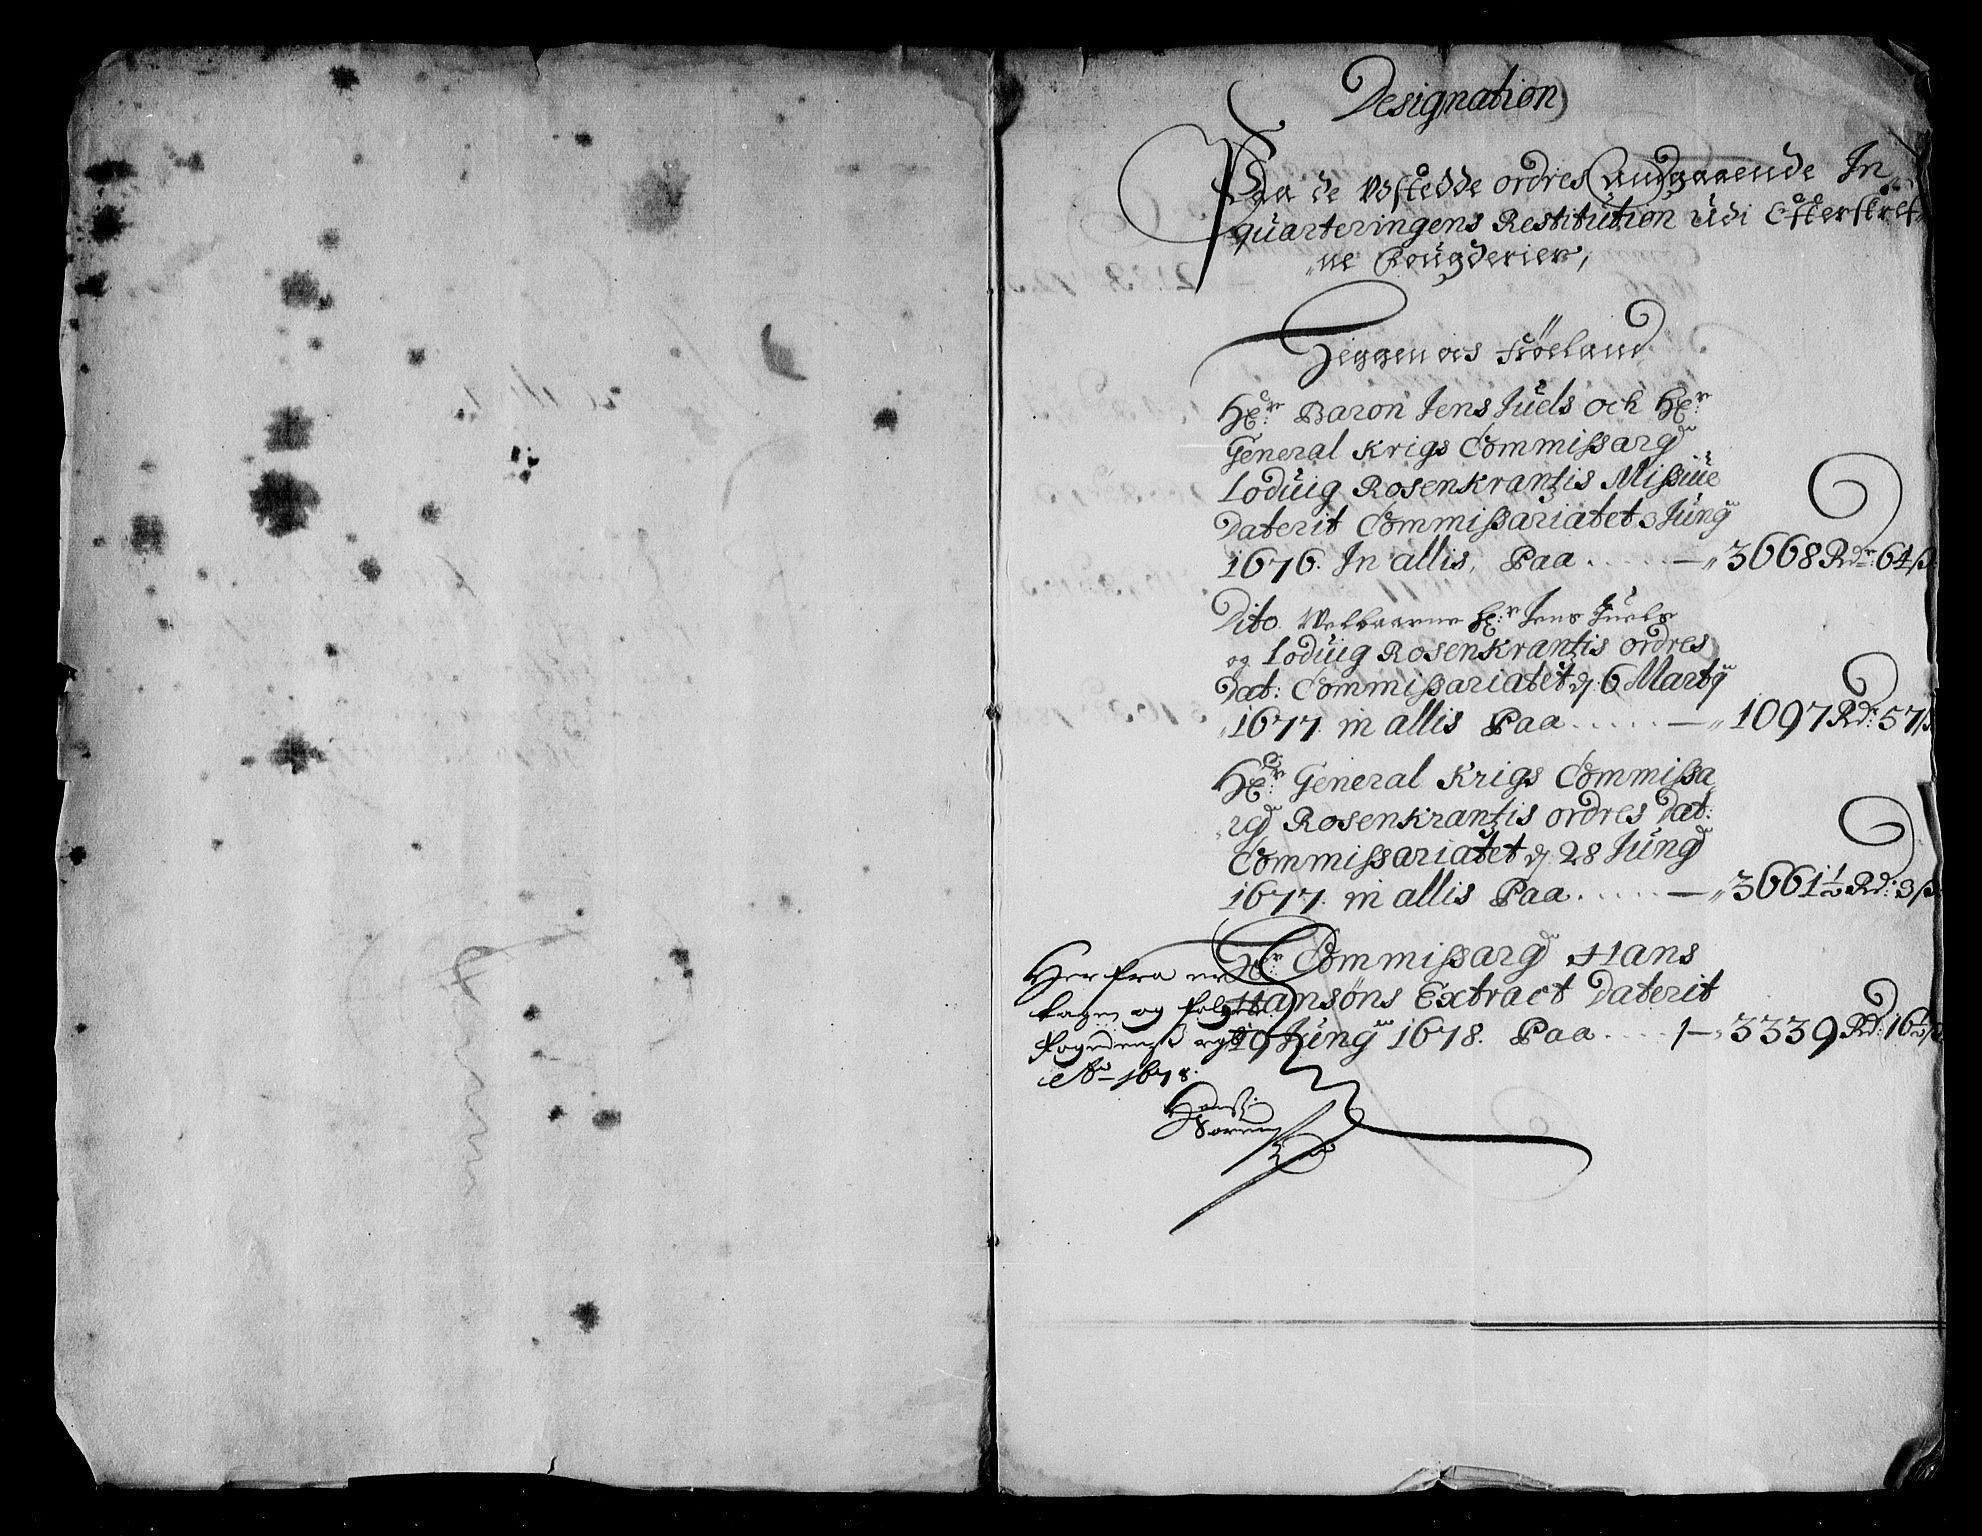 Designation
Paa de udstedde ordres angaaende In„
quarteringens Restitution udi Efterskref
„ne Fougderier,
Heggen och Fröeland
Hr: Baron Jens Juels och Hr:
General Krigs Commissarij
Lodvig Rosenkrantzis Missive
Daterit Commissariatet 3 Junij
1676. In allis, Paa ..... — „3668 Rdr: 64 ß
Dito Welbaarne Hr: Jens Juels
og Lodvig Rosenkrantzis ordres
Dat: Commissariatet d 6 Martij
1677. in allis Paa ..... — „1097 Rdr: 57 ß
Hr: General Krigs Commissa
„rij Rosenkrantzis ordres Dat:
Commissariatet d 28 Junij
1677. in allis Paa ..... — „3661½ Rd: 3 ß
Hr: Commissarij Hans
Hansöns Extract Daterit
10 Junij 1678. Paa .... — „3339 Rd: 16½ ß
Her fra er
tagen og følger
fogedens
Ao 1678.